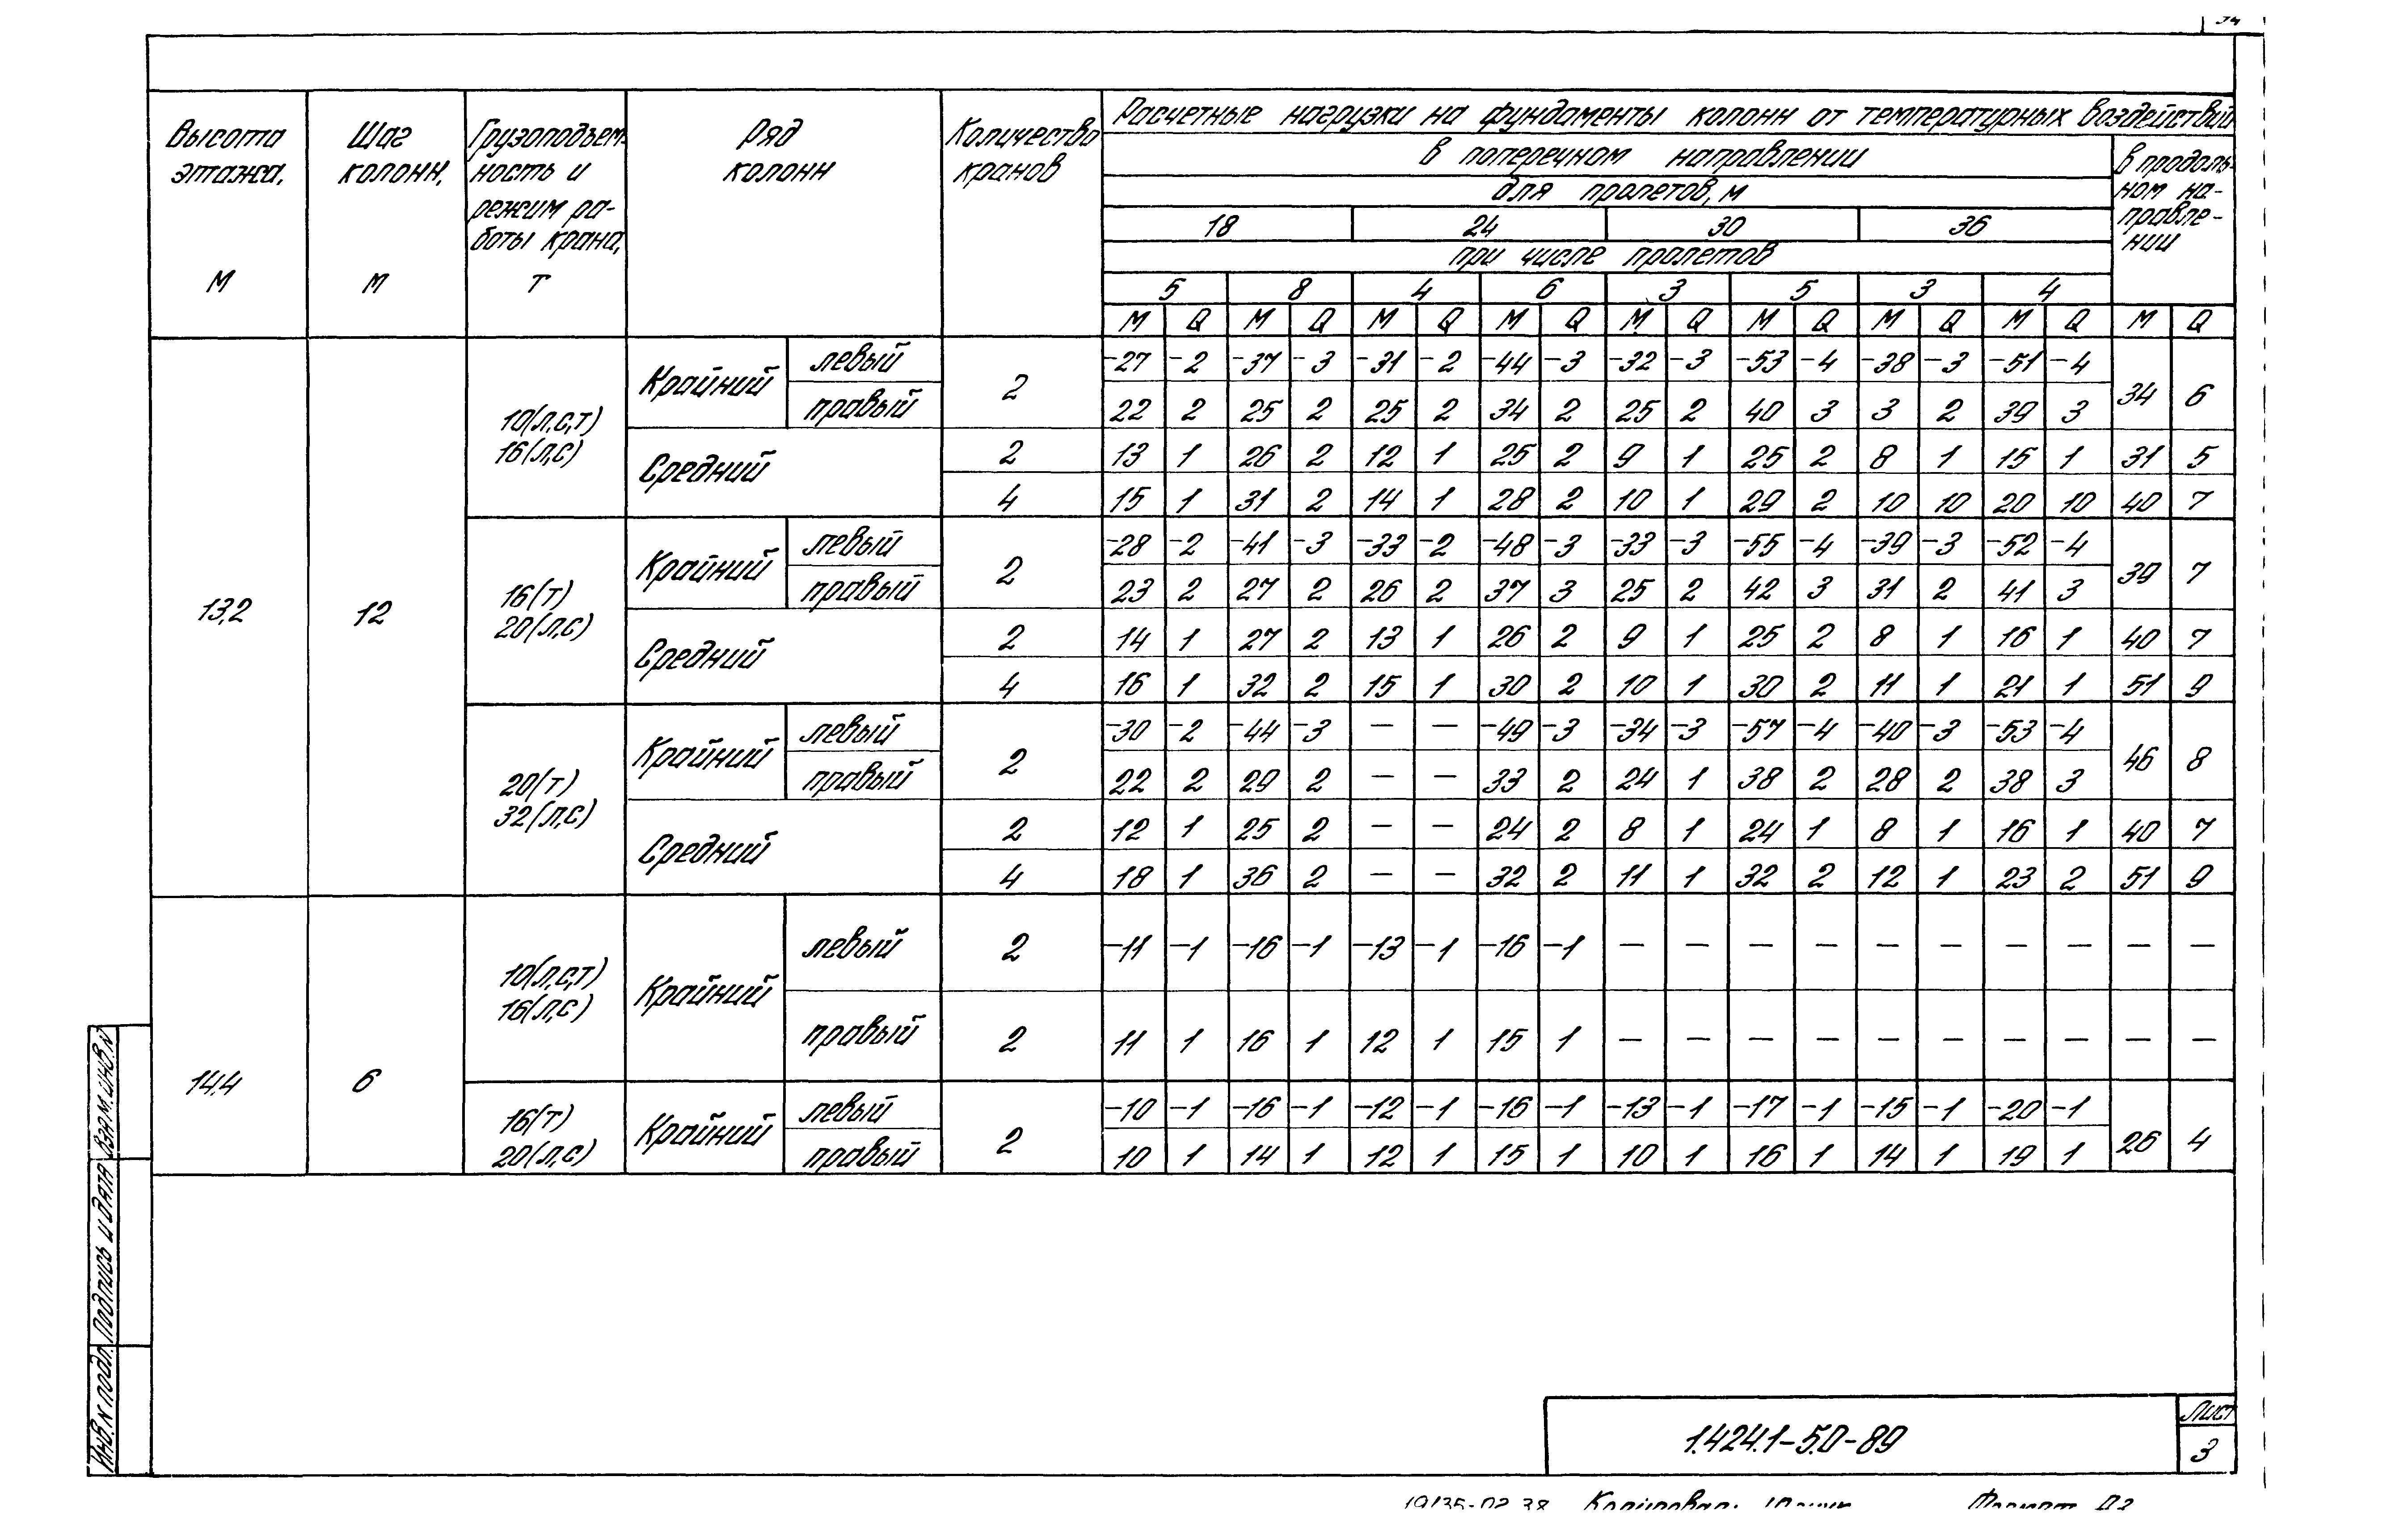 Высота этажа, М
Шаг колонн, м
Грузоподъем-
ность и
режим ра-
боты крана,
Т
Ряд колонн
Количество кранов
Расчетные нагрузки на фундаменты колонн от температурных воздействий
в поперечном направлении
в продоль-
ном на-
правле-
нии
для пролетов, м
18 24 30 36
при числе пролетов
5 8 4 6 3 5 3 4
М Q М Q М Q М Q М Q М Q М Q М Q М Q
13,2 12
10(л,с,т)
16(л,с)
Крайний левый 2 -27 -2 -37 -3 -31 -2 -44 -3 -32 -3 -53 -4 -38 -3 -51 -4 34 6
правый 22 2 25 2 25 2 34 2 25 2 40 3 3 2 39 3
Средний 2 13 1 26 2 12 1 25 2 9 1 25 2 8 1 15 1 31 5
4 15 1 31 2 14 1 28 2 10 1 29 2 10 10 20 10 40 7
16(т)
20(л,с)
Крайний левый 2 -28 -2 -41 -3 -33 -2 -48 -3 -33 -3 -55 -4 -39 -3 -52 -4 39 7
правый 23 2 27 2 26 2 37 3 25 2 42 3 31 2 41 3
Средний 2 14 1 27 2 13 1 26 2 9 1 25 2 8 1 16 1 40 7
4 16 1 32 2 15 1 30 2 10 1 30 2 11 1 21 1 51 9
20(т)
32(л,с)
Крайний левый 2 -30 -2 -44 -3 — — -49 -3 -34 -3 -57 -4 -40 -3 -53 -4 46 8
правый 22 2 29 2 — — 33 2 24 1 38 2 28 2 38 3
Средний 2 12 1 25 2 — — 24 2 8 1 24 1 8 1 16 1 40 7
4 18 1 36 2 — — 32 2 11 1 32 2 12 1 23 2 51 9
14,4 6
10(л,с,т)
16(л,с)
Крайний левый 2 -11 -1 -16 -1 -13 -1 -16 -1 — — — — — — — — — —
правый 2 11 1 16 1 12 1 15 1 — — — — — — — — — —
16(т)
20(л,с)
Крайний левый 2 -10 -1 -16 -1 -12 -1 -16 -1 -13 -1 -17 -1 -15 -1 -20 -1 26 4
правый 10 1 14 1 12 1 15 1 10 1 16 1 14 1 19 1
Инв.N подл. Подпись и дата Взам.инв.N
1.424.1-5.0-89
Лист
3